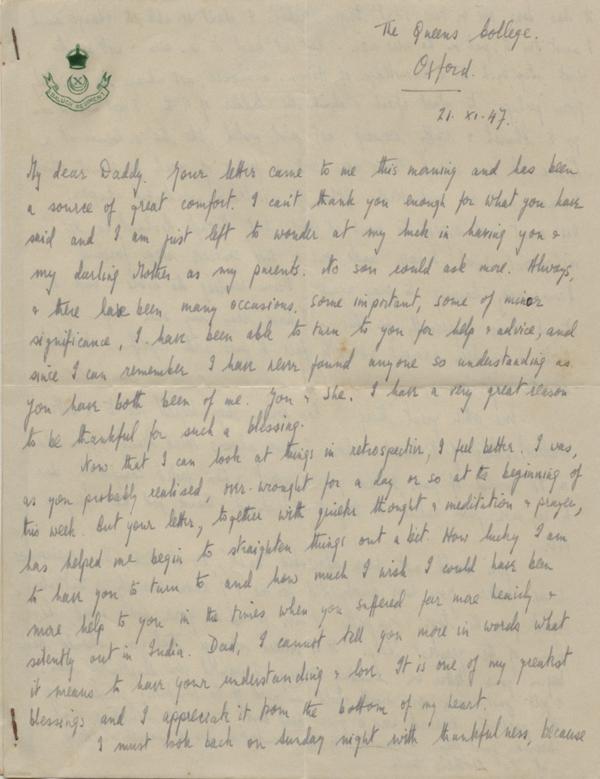 BALUCH REGIMENT
The Queens College.
Oxford.
21. XI. 47.
My dear Daddy. Your letter came to me this morning and has been
a source of great comfort. I can't thank you enough for what you have
said and I am just left to wonder at my luck in having you &
my darling Mother as my parents. No son could ask more. Always,
& there have been many occasions, some important, some of minor
significance, I have been able to turn to you for help & advice, and
since I can remember I have never found anyone so understanding as
you have both been of me. You & she. I have a very great reason
to be thankful for such a blessing.
Now that I can look at things in retrospective, I feel better. I was,
as you probably realised, over-wrought for a day or so at the beginning of
this week. But your letter, together with quieter thought & meditation & prayer,
has helped me begin to straighten things out a bit. How lucky I am
to have you to turn to and how much I wish I could have been
more help to you in the times when you suffered far more heavily &
silently out in India. Dad, I cannot tell you more in words what
it means to have your understanding & love. It is one of my greatest
blessings and I appreciate it from the bottom of my heart.
I must look back on Sunday night with thankfulness, because